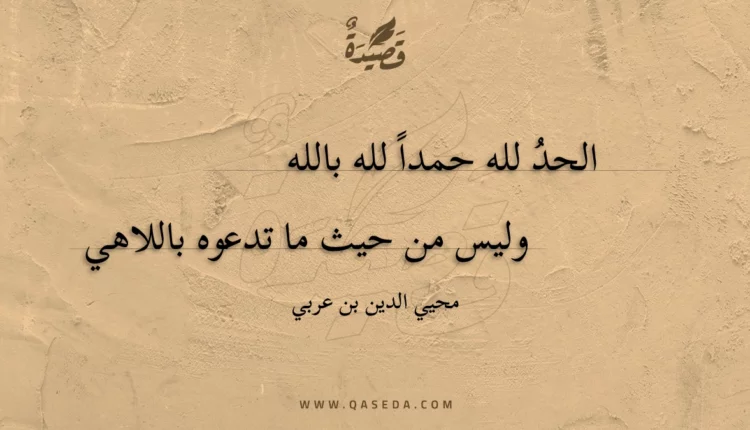 قَصِيدَةٌ
الحدُ لله حمداً لله بالله
وليس من حيث ما تدعوه باللاهي
محيي الدين بن عربي
WWW.QASEDA.COM